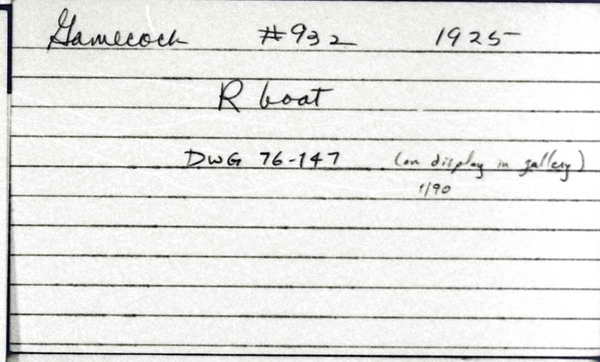 Gamecock #932 1925
R boat
DWG 76-147 (on display in gallery)
1/90